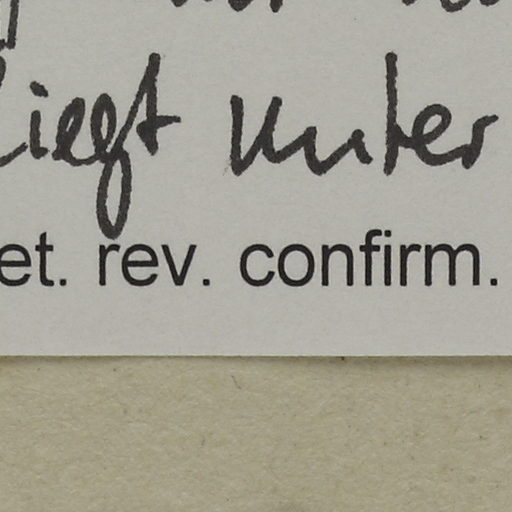 liegt unter
et. rev. confirm.